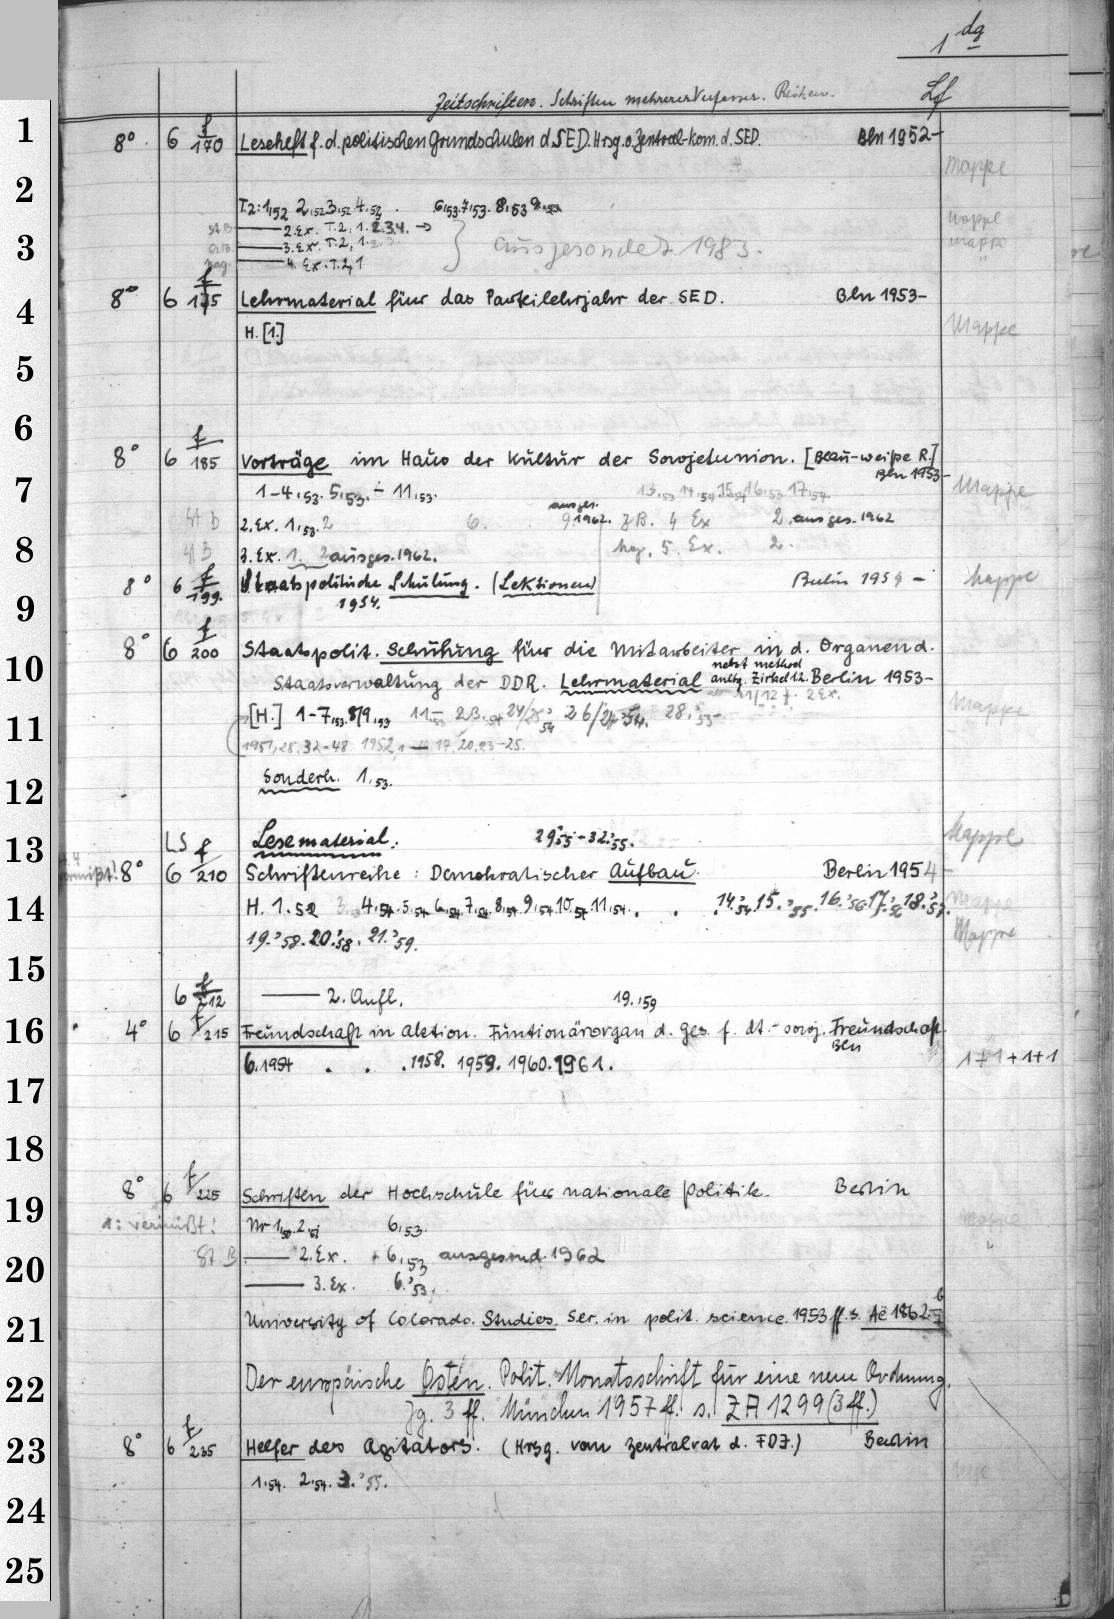 1 dg
Zeitschriften. Schriften mehrerer Verfasser. Reihen. Lf
1
8° 6 f/170 Leseheft f. d. politischen Grundschulen d. SED. Hrsg. v. Zentral-kom. d. SED. Bln 1952-
Mappe
2
T.2: 1,52 2,52 3,52 4,52 . 6,53. 7,53. 8,53 9,53
St B — 2. Ex. T.2, 1. 2. 3. 4. →
3
— 3. Ex. T.2, 1. 2. 3 } ausgesondert 1983.
Mappe
— 4. Ex. T.2, 1
8° 6 f/175 Lehrmaterial für das Parteilehrjahr der SED. Bln 1953-
4
H. [1.]
Mappe
5
6
8° 6 f/185 Vorträge im Haus der Kultur der Sowjetunion. [Blau-weiße R.]
Bln 1953-
7
1-4,53. 5,53. - 11,53. 13,53 14,54 15,54 16,53 17,54.
Mappe
St B 2. Ex. 1,53. 2 6. 9. ausges. 1962. 4 Ex 2. ausges. 1962
8
St B 3. Ex. 1. 2 ausges. 1962. 5. Ex. 2.
8° 6 f/199. Staatspolitische Schulung. (Lektionen) Berlin 1954 -
Mappe
1954.
9
8° 6 f/200 Staatspolit. Schulung für die Mitarbeiter in d. Organen d.
10
Staatsverwaltung der DDR. Lehrmaterial nebst method. Anltg. Zirkel 12. Berlin 1953-
11/12 f. 2 Ex.
Mappe
[H.] 1-7,53. 8/9,53 11,53 23,54 24/25,54 26/27,54. 28,53-
11
1951, 28. 32-48. 1952, 1 — 17. 20. 23-25.
Sonderh. 1,53.
12
LS Lesematerial: 29,'55-32,'55.
Mappe
13
vermißt! 8° 6 f/210 Schriftenreihe: Demokratischer Aufbau. Berlin 1954-
14
H. 1.52 3,53 4,54. 5,54 6,54 7,54. 8,54. 9,54. 10,54 11,54. . . 14,'54. 15.'55. 16.'56. 17.'56 18.'57.
Mappe
19.'58. 20.'58. 21.'59.
Mappe
15
6 f/212 — 2. Aufl. 19.,59
16
4° 6 f/215 Freundschaft in Aktion. Funtionärorgan d. Ges. f. dt.-sowj. Freundschaft.
Bln
6.1954 . . . 1958. 1959. 1960. 1961.
1+1+1+1
17
18
8° 6 f/225 Schriften der Hochschule für nationale Politik. Berlin
19
1: vermißt! Nr 1,50. 2,51 6,53.
Mappe
St. B — 2. Ex. 6,53 ausgesond. 1962
20
— 3. Ex. 6.'53.
21
University of Colorado. Studies. Ser. in polit. science. 1953 ff. s. Aë 1862
22
Der europäische Osten. Polit. Monatsschrift für eine neue Ordnung.
Jg. 3 ff. München 1957 ff. s. ZA 1299 (3 ff.)
23
8° 6 f/235 Helfer des Agitators. (Hrsg. vom Zentralrat d. FDJ.) Berlin
1.54. 2.54. 3.'55.
24
25